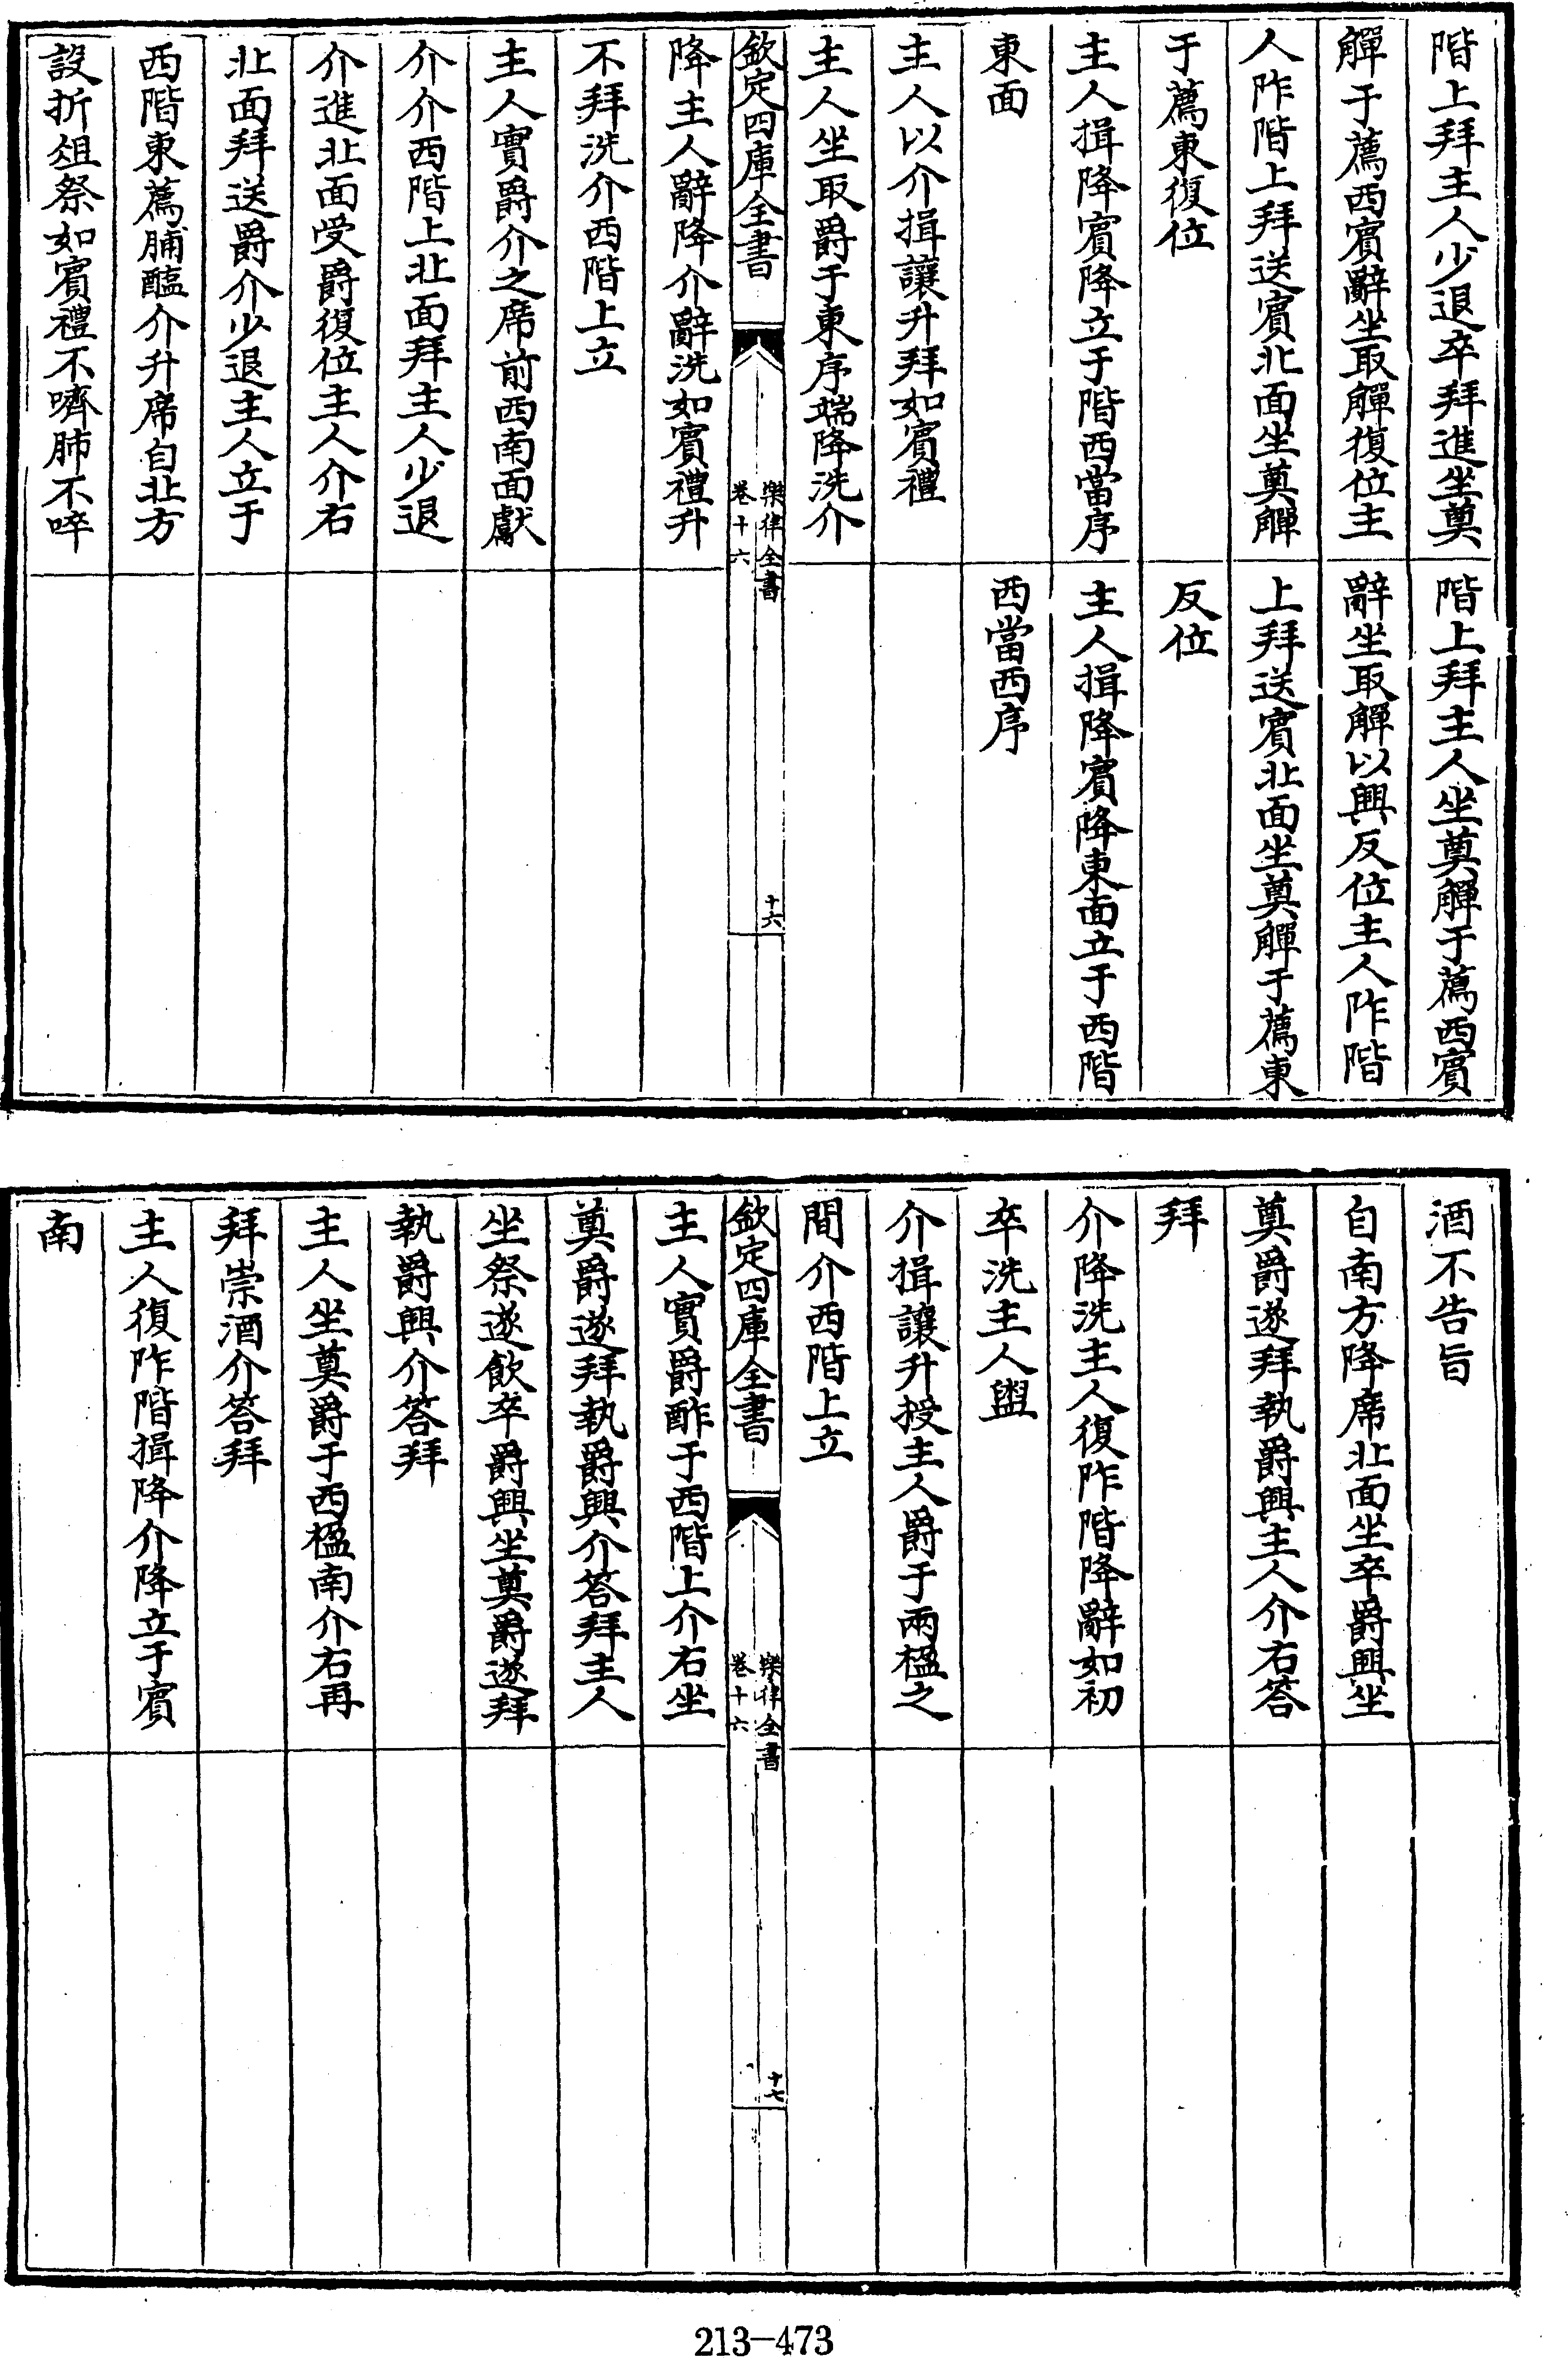 階上拜主人少退卒拜進坐奠
觶于薦西賓辭坐取觶復位主
人阼階上拜送賓北面坐奠觶
于薦東復位
主人揖降賓降立于階西當序
東面
階上拜主人坐奠觶于薦西賓
辭坐取觶以興反位主人阼階
上拜送賓北面坐奠觶于薦東
反位
主人揖降賓降東面立于西階
西當西序
主人以介揖讓升拜如賓禮
主人坐取爵于東序端降洗介
欽定四庫全書
樂律全書
卷十六
十六
降主人辭降介辭洗如賓禮升
不拜洗介西階上立
主人實爵介之席前西南面獻
介介西階上北面拜主人少退
介進北面受爵復位主人介右
北面拜送爵介少退主人立于
西階東薦脯醢介升席自北方
設折俎祭如賓禮不嚌肺不啐
酒不告旨
自南方降席北面坐卒爵興坐
奠爵遂拜執爵興主人介右答
拜
介降洗主人復阼階降辭如初
卒洗主人盥
介揖讓升授主人爵于兩楹之
間介西階上立
欽定四庫全書
樂律全書
卷十六
十七
主人實爵酢于西階上介右坐
奠爵遂拜執爵興介答拜主人
坐祭遂飲卒爵興坐奠爵遂拜
執爵興介答拜
主人坐奠爵于西楹南介右再
拜崇酒介答拜
主人復阼階揖降介降立于賓
南
213-473